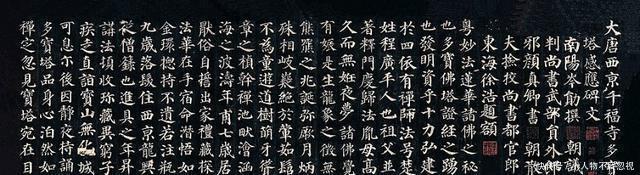 大唐西京千福寺多
塔感應碑文
南陽岑勛撰 朝
判尚書武部員外郎
邪顏真卿書 朝
夫撿挍尚書都官郎
東海徐浩題額
粵妙法蓮華諸佛之
也多寶佛塔證經之踴
也發明資乎十力弘建
於四依有禪師法号楚
姓程廣平人也祖父並
著釋門慶歸法胤母高
久而無妊夜夢諸佛覺
有娠是生龍象之徵無
熊羆之兆誕彌厥月炳
殊相岐嶷絕於葷茹髫
不為童遊道樹萌牙聳
章之楨幹禪池畎澮涵
海之波濤年甫七歲居
猒俗自誓出家禮藏探
法華在手宿命潛悟如
金環總持不遺若注瓶
九歲落髮住西京龍興
從僧籙也進具之年昇
講法頓收珍藏異窮子
疾走直詣寶山無化城
可息尒後因靜夜持誦
多寶塔品身心泊然如
禪定忽見寶塔宛在目
人物不容忽视